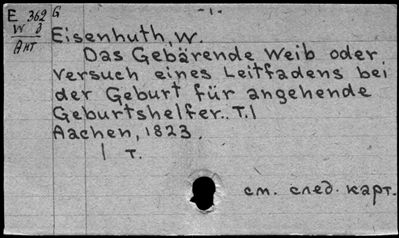 E 362 G
-1-
W 3
Ант
Eisenhuth, W.
Das Gebärende Weib oder
Versuch eines Leitfadens bei
der Geburt für angehende
Geburtshelfer. T.1
Aachen, 1823.
1 т.
см. след. карт.